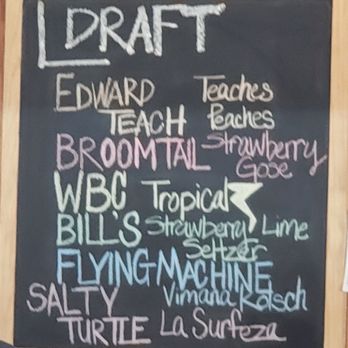 DRAFT
EDWARD Teaches
TEACH Peaches
BROOMTAIL Strawberry
Gose
WBC Tropical
BILL'S Strawberry Lime
Seltzer
FLYING MACHINE
SALTY Vimana Kolsch
TURTLE La Surfeza